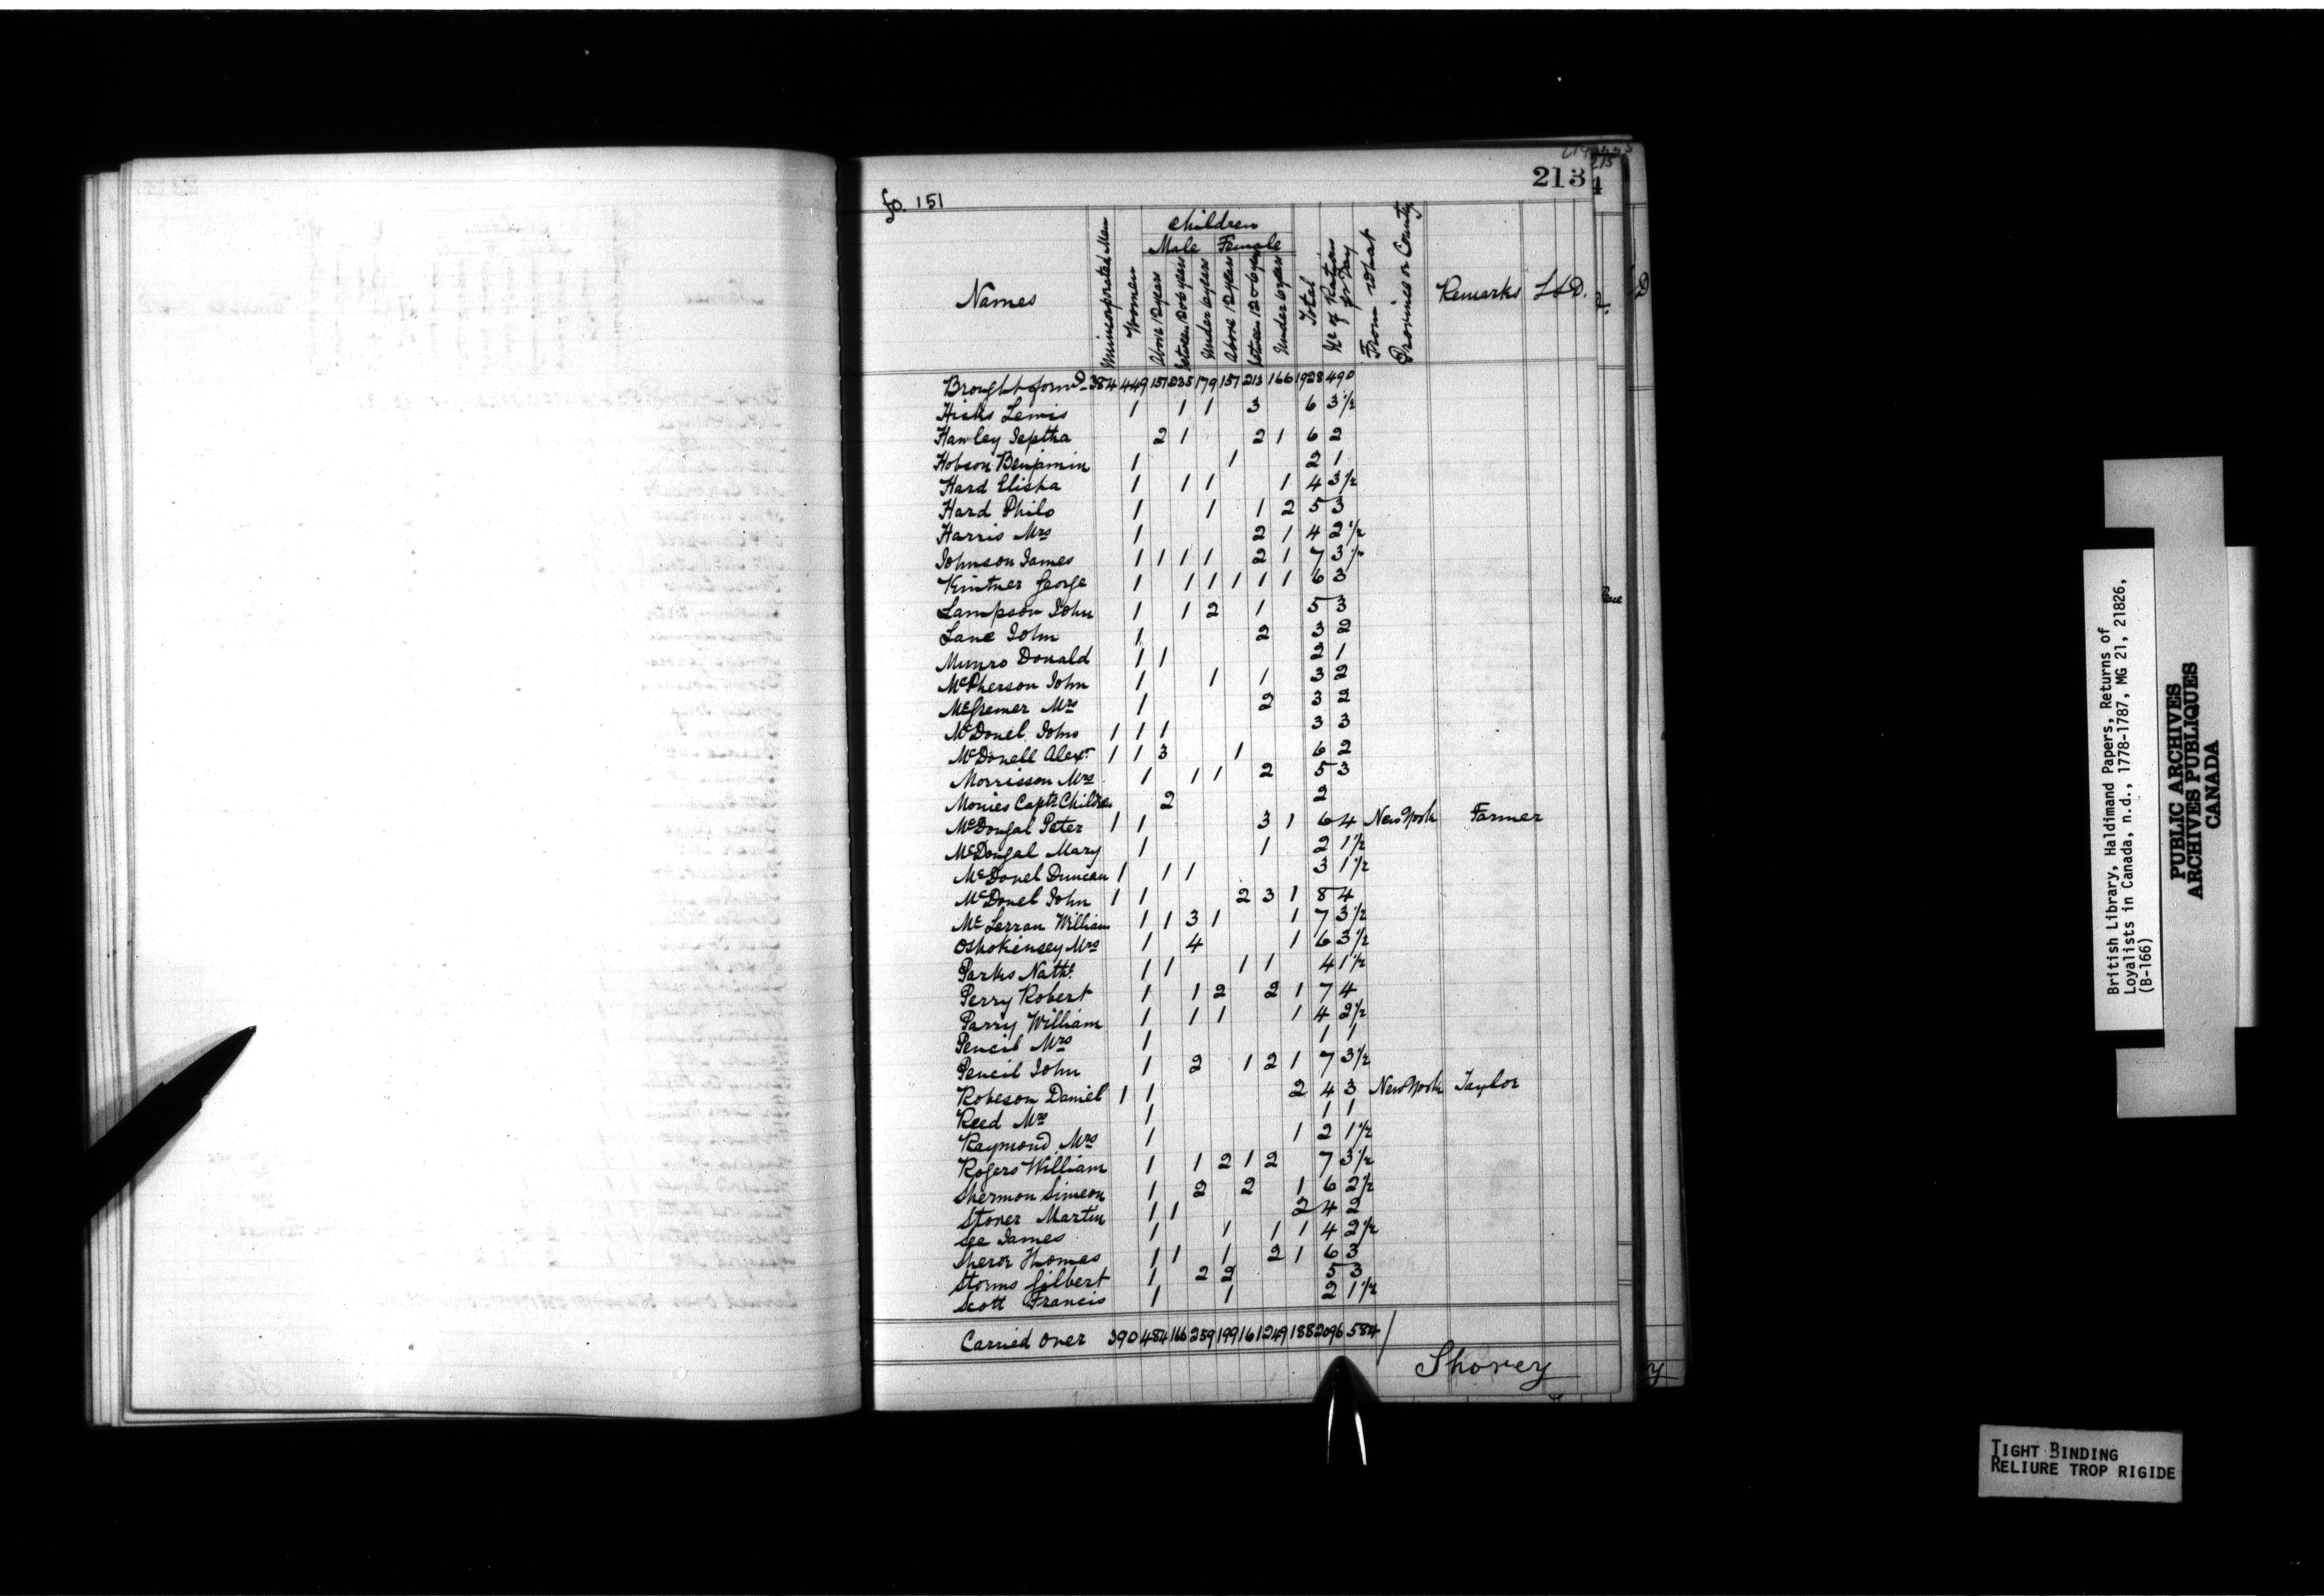 213
fo. 151
Names
Unincorporated Men
Women
Children
Male Female
Above 12 years
between 12 & 6 years
Under 6 years
Above 12 years
between 12 & 6 years
Under 6 years
Total
No of Rations pr Day
From what Province or County
Remarks
L S D.
Brought forwd 384 449 151 235 179 151 213 166 1928 490
Hicks Lewis 1 1 1 3 6 3½
Hawley Jeptha 2 1 2 1 6 2
Hobson Benjamin 1 1 2 1
Hard Elisha 1 1 1 1 4 3½
Hard Philo 1 1 1 2 5 3
Harris Mrs 1 2 1 4 2½
Johnson James 1 1 1 1 2 1 7 3½
Kintner George 1 1 1 1 1 1 6 3
Lampson John 1 1 2 1 5 3
Lane John 1 2 3 2
Munro Donald 1 1 2 1
McPherson John 1 1 1 3 2
Mrs 1 2 3 2
McDonel John 1 1 1 3 3
McDonell Alexr 1 1 3 1 6 2
Morrisson Mrs 1 1 1 2 5 3
Monies Capts Children 2 2
McDougal Peter 1 1 3 1 6 4 New York Farmer
McDougal Mary 1 1 2 1½
McDonel Duncan 1 1 1 3 1½
McDonel John 1 1 2 3 1 8 4
McLerran William 1 1 3 1 1 7 3½
Oshokensey Mrs 1 4 1 6 3½
Parks Nathl 1 1 1 1 4 1½
Perry Robert 1 1 2 2 1 7 4
Parry William 1 1 1 1 4 2½
Pencil Mrs 1 1 1
Pencil John 1 2 1 2 1 7 3½
Robeson Daniel 1 1 2 4 3 New York Taylor
Reed Mrs 1 1 1
Raymond Mrs 1 1 2 1½
Rogers William 1 1 2 1 2 7 3½
Shermon Simeon 1 2 2 1 6 2½
Stover Martin 1 1 2 4 2
See James 1 1 1 1 4 2½
Sheror Thomas 1 1 1 2 1 6 3
Storms Gilbert 1 2 2 5 3
Scott Francis 1 1 2 1½
Carried over 390 484 166 259 199 161 249 188 2096 584
Shorey
British Library, Haldimand Papers, Returns of
Loyalists in Canada, n.d., 1778-1787, MG 21, 21826,
(B-166)
PUBLIC ARCHIVES
ARCHIVES PUBLIQUES
CANADA
TIGHT BINDING
RELIURE TROP RIGIDE